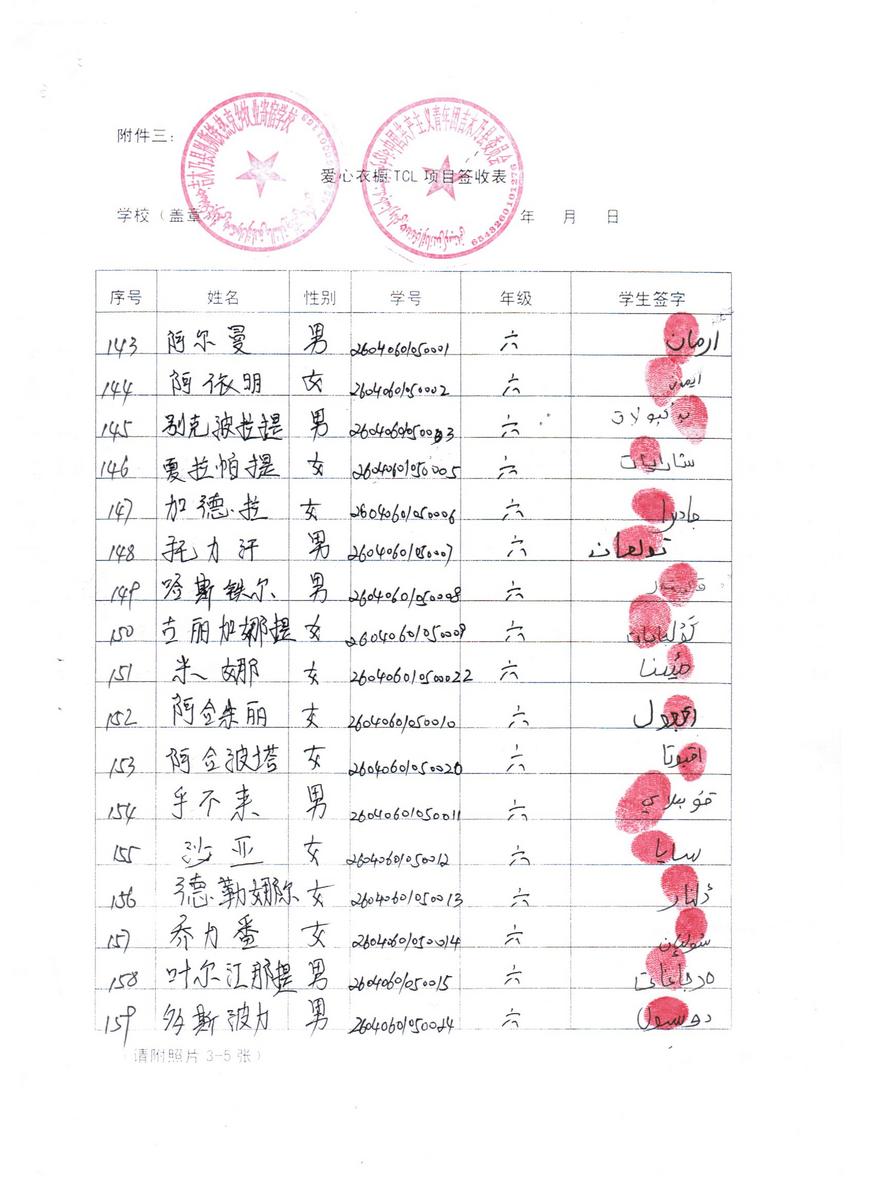 附件三：
爱心衣橱TCL项目签收表
学校（盖章 年 月 日
序号 姓名 性别 学号 年级 学生签字
143 阿尔曼 男 26040601050001 六 ارمان
144 阿依明 女 26040601050002 六
145 别克波拉提 男 六
146 夏拉帕提 女 26040601050005 六
147 加德拉 女 26040601050006 六 جادىرا
148 托力汗 男 26040601050007 六
149 哈斯铁尔 男 26040601050008 六
150 古丽加娜提 女 26040601050009 六
151 米娜 女 26040601050022 六
152 阿合朱丽 女 26040601050010 六
153 阿合波塔 女 26040601050020 六 اقبوتا
154 乎不来 男 26040601050011 六
155 沙亚 女 26040601050012 六 سايا
156 德勒娜尔 女 26040601050013 六
157 乔力番 女 26040601050014 六
158 叶尔江那提 男 26040601050015 六
159 多斯波力 男 26040601050024 六
（请附照片3-5张）